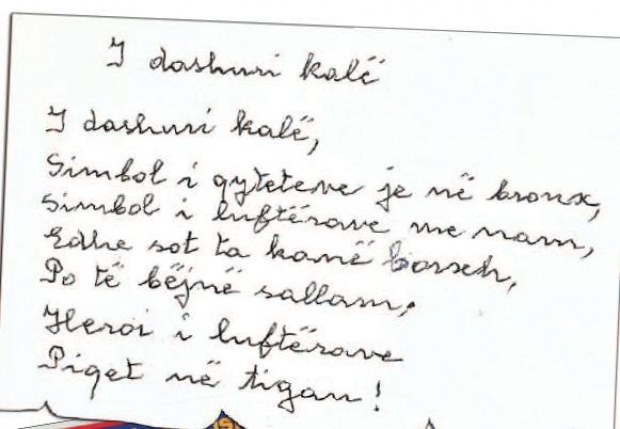 I dashuri kalë
I dashuri kalë,
Simbol i qyteteve je në bronx,
Simbol i luftërave me nam,
Edhe sot ta kanë borxh,
Po të bëjnë sallam,
Heroi i luftërave
Piqet në tigan!